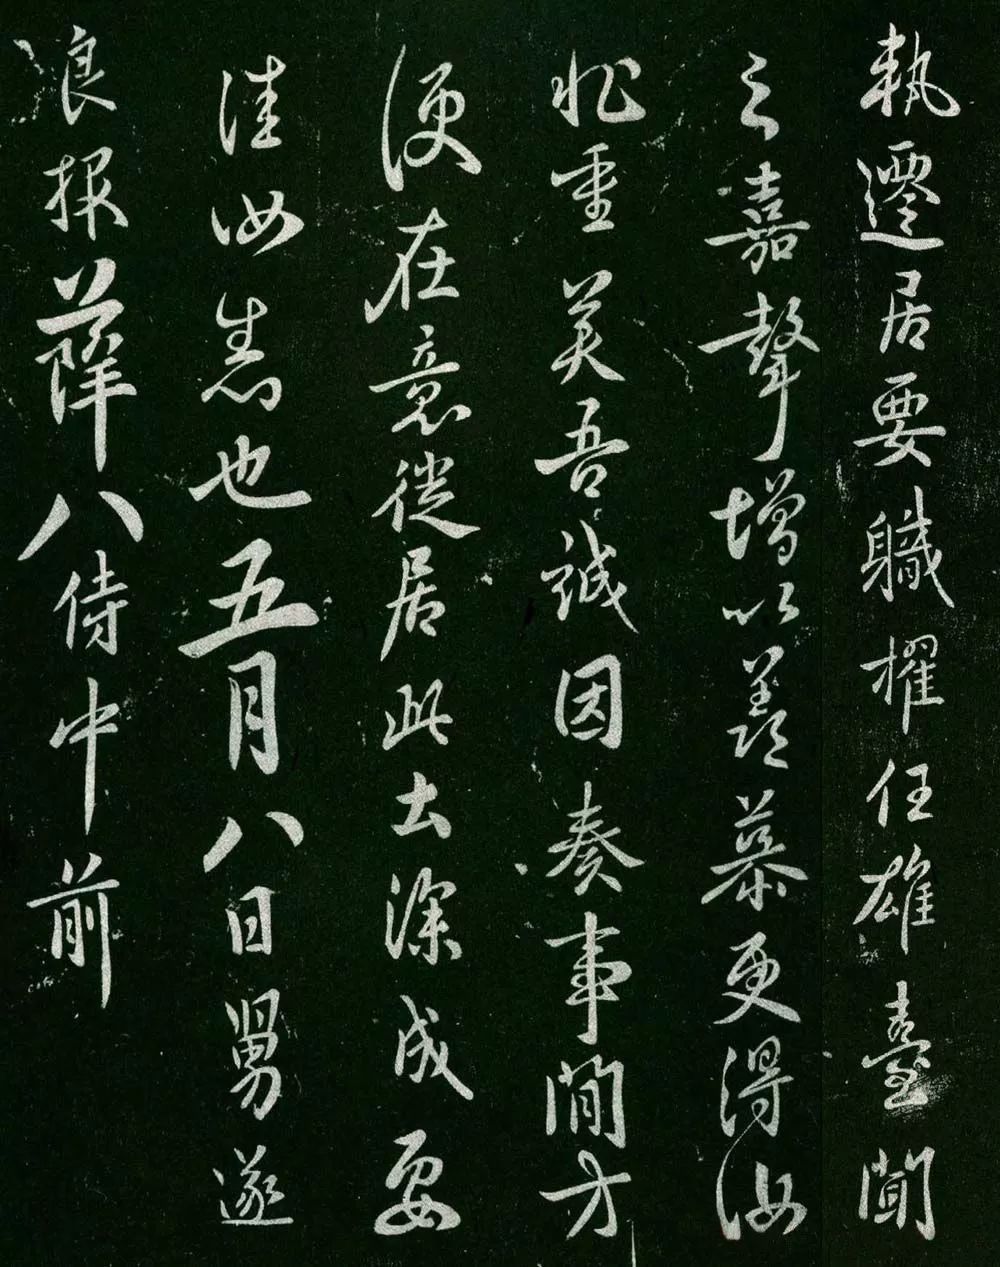 執遷居要職擢任雄臺聞
之嘉聲增以羨慕更得汝
重美吾誠因奏事閒方
便在意從居此去深成要
佳汝悉也五月八日舅遂
良報薛八侍中前